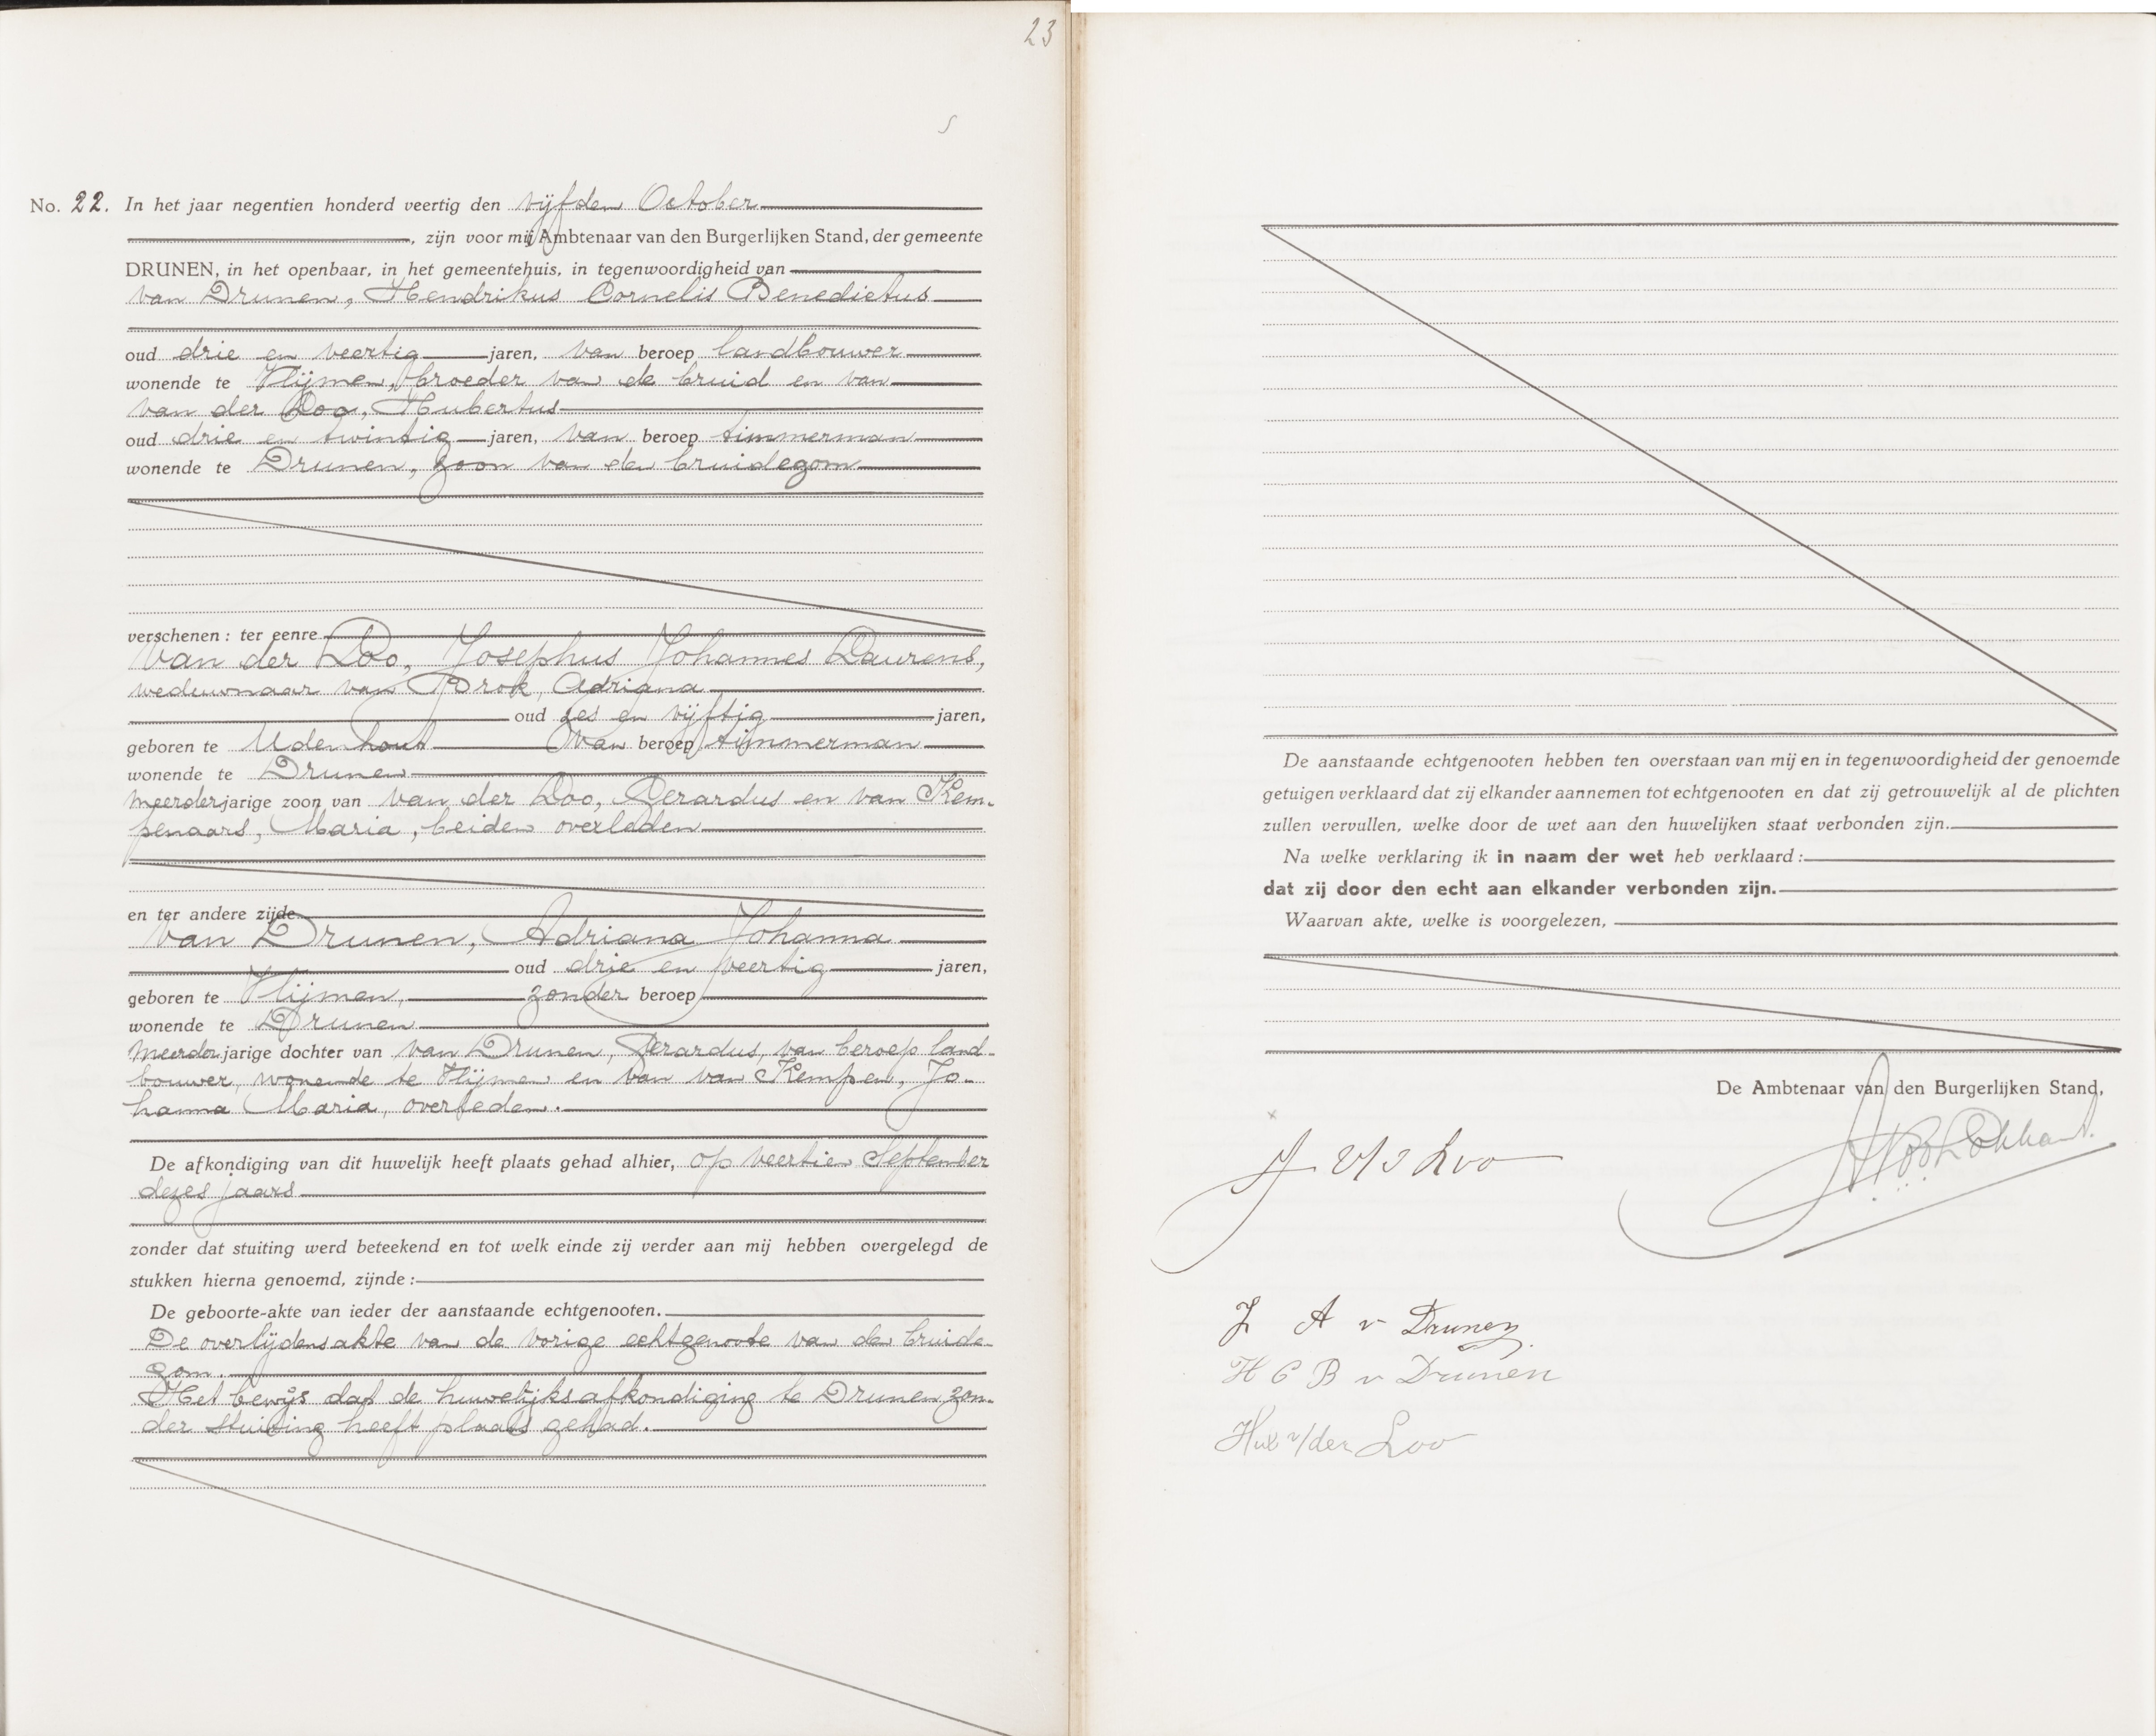 23
No. 22. In het jaar negentien honderd veertig den vijfden October
, zijn voor mij Ambtenaar van den Burgerlijken Stand, der gemeente
DRUNEN, in het openbaar, in het gemeentehuis, in tegenwoordigheid van
van Drunen, Hendrikus Cornelis Benedictus
oud drie en veertig jaren, van beroep landbouwer
wonende te Vlijmen, broeder van de bruid en van
van der Loo, Hubertus
oud drie en twintig jaren, van beroep timmerman
wonende te Drunen, zoon van den bruidegom
verschenen : ter eenre
Van der Loo, Josephus Johannes Laurens,
weduwnaar van Brok, Adriana
oud zes en vijftig jaren,
geboren te Udenhout van beroep timmerman
wonende te Drunen
meerderjarige zoon van van der Loo, Gerardus en van Kem-
penaars, Maria, beiden overleden
en ter andere zijde
Van Drunen, Adriana Johanna
oud drie en veertig jaren,
geboren te Vlijmen, zonder beroep
wonende te Drunen
meerderjarige dochter van van Drunen, Gerardus, van beroep land-
bouwer, wonende te Vlijmen en van van Kempen, Jo-
hanna Maria, overleden.
De afkondiging van dit huwelijk heeft plaats gehad alhier, op veertien September
dezes jaars
zonder dat stuiting werd beteekend en tot welk einde zij verder aan mij hebben overgelegd de
stukken hierna genoemd, zijnde :
De geboorte-akte van ieder der aanstaande echtgenooten.
De overlijdensakte van de vorige echtgenoote van den bruide-
gom.
Het bewijs dat de huwelijksafkondiging te Drunen zon-
der stuiting heeft plaats gehad.
De aanstaande echtgenooten hebben ten overstaan van mij en in tegenwoordigheid der genoemde
getuigen verklaard dat zij elkander aannemen tot echtgenooten en dat zij getrouwelijk al de plichten
zullen vervullen, welke door de wet aan den huwelijken staat verbonden zijn.
Na welke verklaring ik in naam der wet heb verklaard :
dat zij door den echt aan elkander verbonden zijn.
Waarvan akte, welke is voorgelezen,
De Ambtenaar van den Burgerlijken Stand,
J v/d Loo
J A v Drunen
H C B v Drunen
Hub v/der Loo